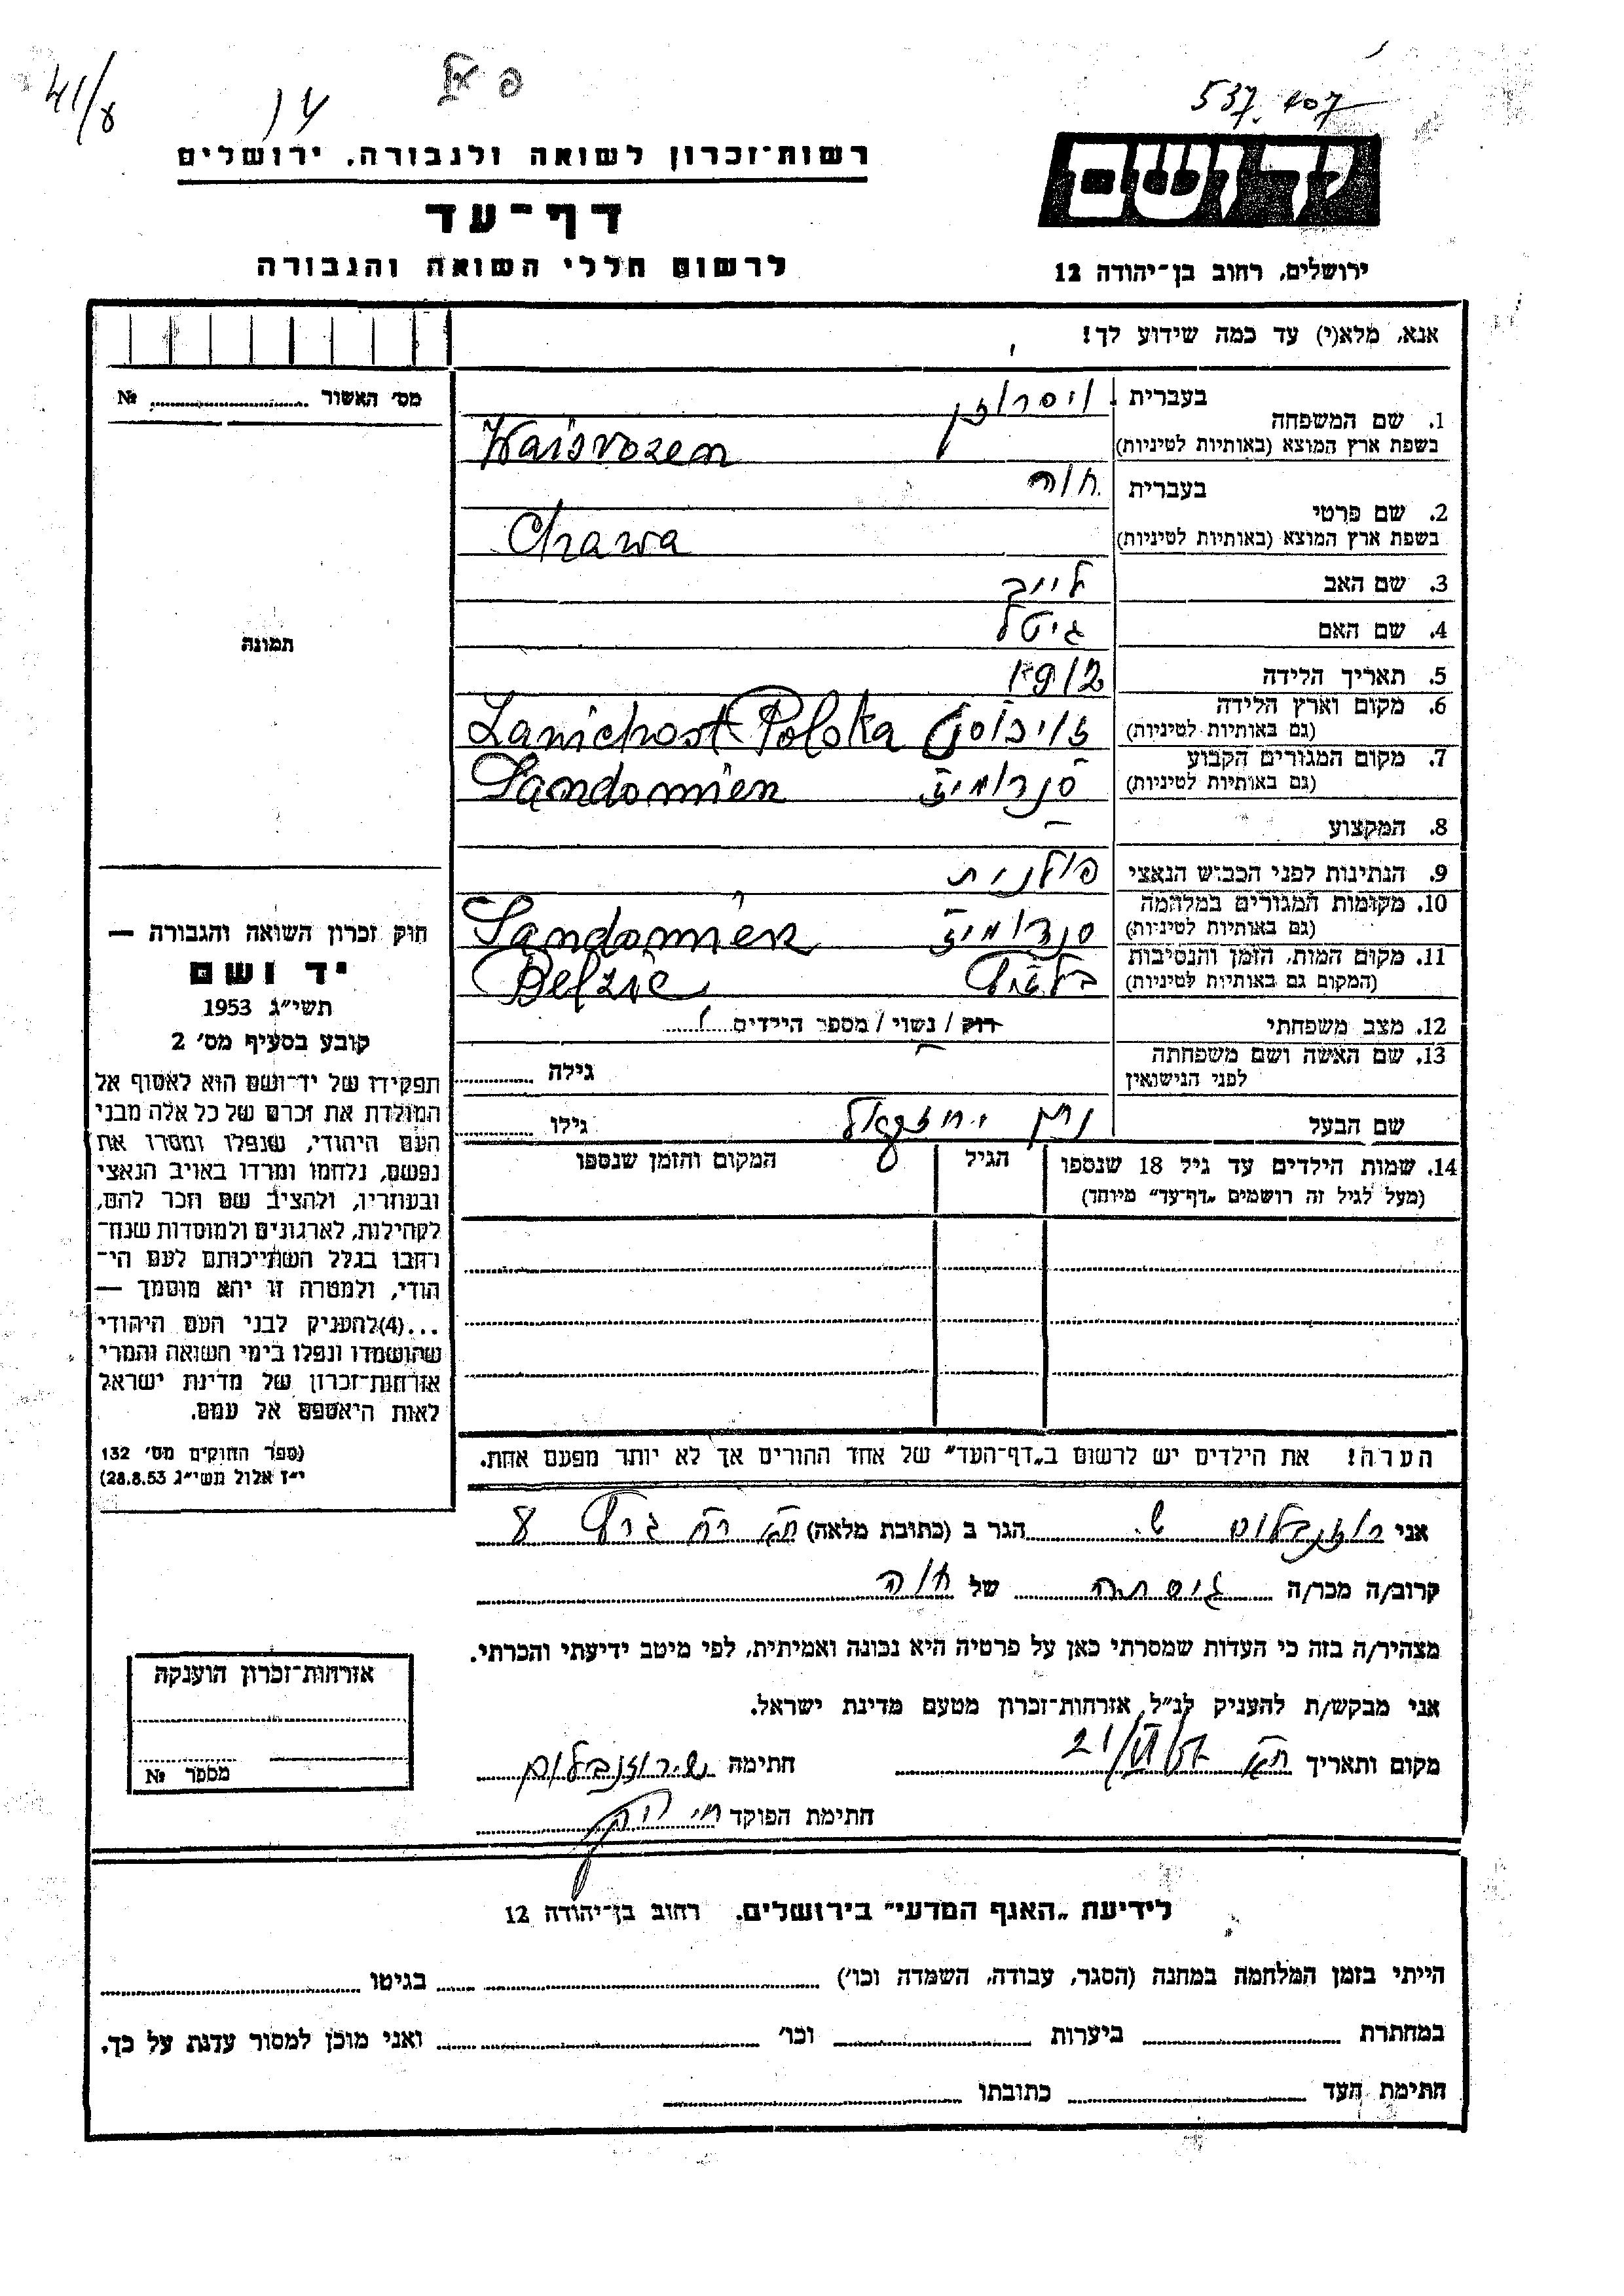 41/8
פ
537. 407
רשות-זכרון לשואה ולגבורה, ירושלים
דף-עד
לרשום חללי השואה והגבורה
יד ושם
ירושלים, רחוב בן-יהודה 12
אנא, מלא(י) עד כמה שידוע לך!
מס׳ האשור № 
1. שם המשפחה
בעברית ויסרוזן
בשפת ארץ המוצא (באותיות לטיניות) Waisrozen
2. שם פרטי
בעברית חוה
בשפת ארץ המוצא (באותיות לטיניות) Chawa
3. שם האב לייב
4. שם האם גיטל
5. תאריך הלידה 1912
6. מקום וארץ הלידה
(גם באותיות לטיניות) Zanichost Polska
7. מקום המגורים הקבוע
(גם באותיות לטיניות) סנדומיז Sandomien
8. המקצוע –
9. הנתינות לפני הכבוש הנאצי פולנית
10. מקומות המגורים במלחמה
(גם באותיות לטיניות) סנדומיז Sandomien
11. מקום המות, הזמן והנסיבות
(המקום גם באותיות לטיניות) Belzic
12. מצב משפחתי רוק / נשוי / מספר הילדים
13. שם האשה ושם משפחתה
לפני הנישואין גילה
שם הבעל יחזקאל גילו
14. שמות הילדים עד גיל 18 שנספו
(מעל לגיל זה רושמים „דף-עד״ מיוחד)
הגיל
המקום והזמן שנספו
תמונה
חוק זכרון השואה והגבורה —
יד ושם
תשי״ג 1953
קובע בסעיף מס׳ 2
תפקידו של יד-ושם הוא לאסוף אל
המולדת את זכרם של כל אלה מבני
העם היהודי, שנפלו ומסרו את
נפשם, נלחמו ומרדו באויב הנאצי
ובעוזריו, ולהציב שם וזכר להם,
לקהילות, לארגונים ולמוסדות שנח-
רבו בגלל השתייכותם לעם הי-
הודי, ולמטרה זו יהא מוסמך —
...(4)להעניק לבני העם היהודי
שהושמדו ונפלו בימי השואה והמרי
אזרחות-זכרון של מדינת ישראל
לאות היאספם אל עמם.
(ספר החוקים מס׳ 132
י״ז אלול תשי״ג 28.8.53)
הערה! את הילדים יש לרשום ב„דף-העד״ של אחד ההורים אך לא יותר מפעם אחת.
אני רוזנבלום ש. הגר ב (כתובת מלאה) תא
קרוב/ה מכר/ה גיסתה של חוה
מצהיר/ה בזה כי העדות שמסרתי כאן על פרטיה היא נכונה ואמיתית, לפי מיטב ידיעתי והכרתי.
אני מבקש/ת להעניק לנ״ל אזרחות-זכרון מטעם מדינת ישראל.
מקום ותאריך תא חתימה ש. רוזנבלום
חתימת הפוקד
אזרחות-זכרון הוענקה
מספר №
לידיעת „האגף המדעי״ בירושלים. רחוב בן-יהודה 12
הייתי בזמן המלחמה במחנה (הסגר, עבודה, השמדה וכו׳) בגיטו
במחתרת ביערות וכו׳ ואני מוכן למסור עדות על כך.
חתימת העד כתובתו